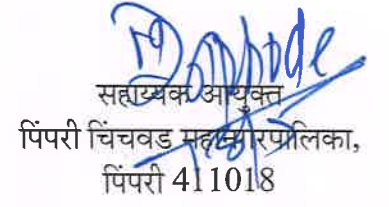 सहाय्यक आयुक्त
पिंपरी चिंचवड महानगरपालिका,
पिंपरी 411018